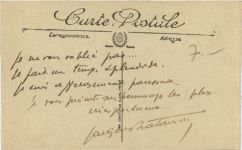 Carte Postale
Correspondance
Adresse
7.-
je ne vous oublie pas...
Il fait un temps splendide.
Je suis affreusement paresseux
je vous présente mes hommages les plus